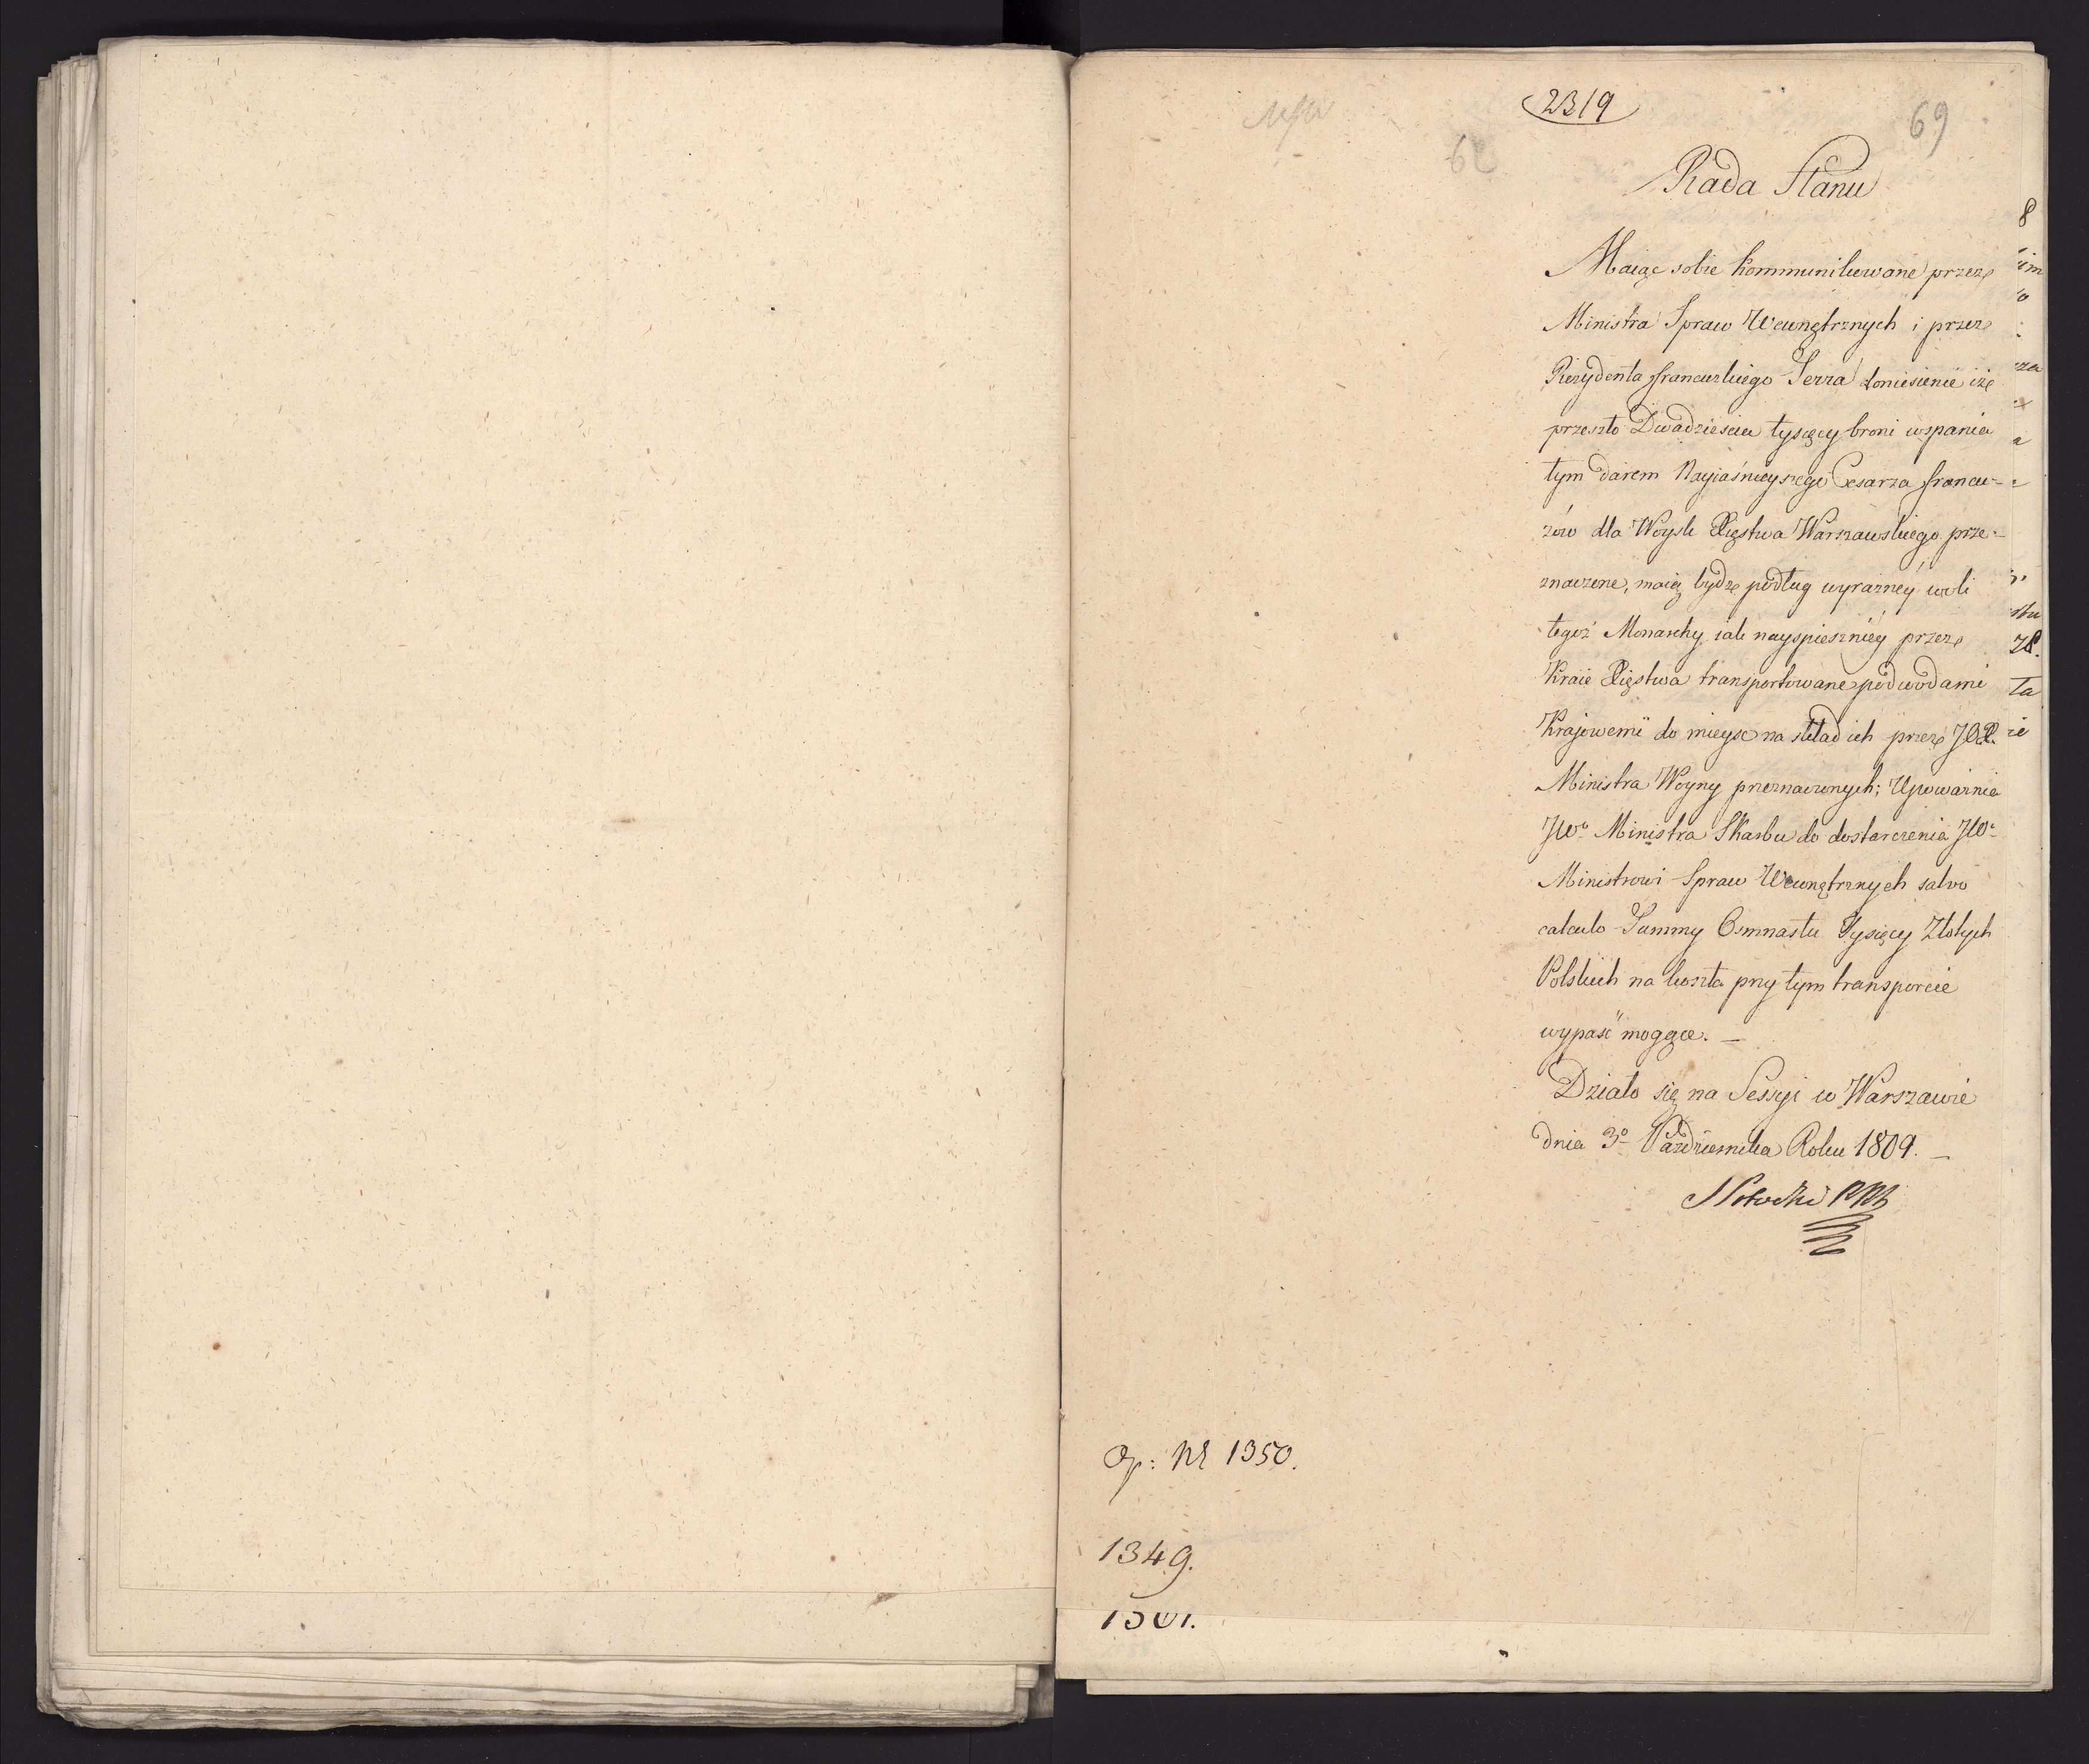 2319
69
62
Rada Stanu
Maiąc sobie kommunikowane przez
Ministra Spraw Wewnętrznych i przez
Rezydenta francuzkiego Serra doniesienie iż
przeszło Dwadzieścia tysięcy broni wspania
łym darem Nayiaśnieyszego Cesarza francu-
zów dla Woysk Xięstwa Warszawskiego prze-
znaczone, maią bydź podług wyrazney woli
tegoż Monarchy iak nayspieszniey przez
Kraie Xięstwa transportowane podwodami
Krajowemi do mieysc na skład ich przez JOX.
Ministra Woyny przeznaczonych; Upoważnia
JWo Ministra Skarbu do dostarczenia JWo
Ministrowi Spraw Wewnętrznych salvo
calculo Summy Osmnastu Tysięcy Złotych
Polskich na koszta przy tym transporcie
wypaść mogące. —
Działo się na Sessyi w Warszawie
dnia 3o Października Roku 1809. —
SPotocki PRS
Op: Nr 1350.
1349.